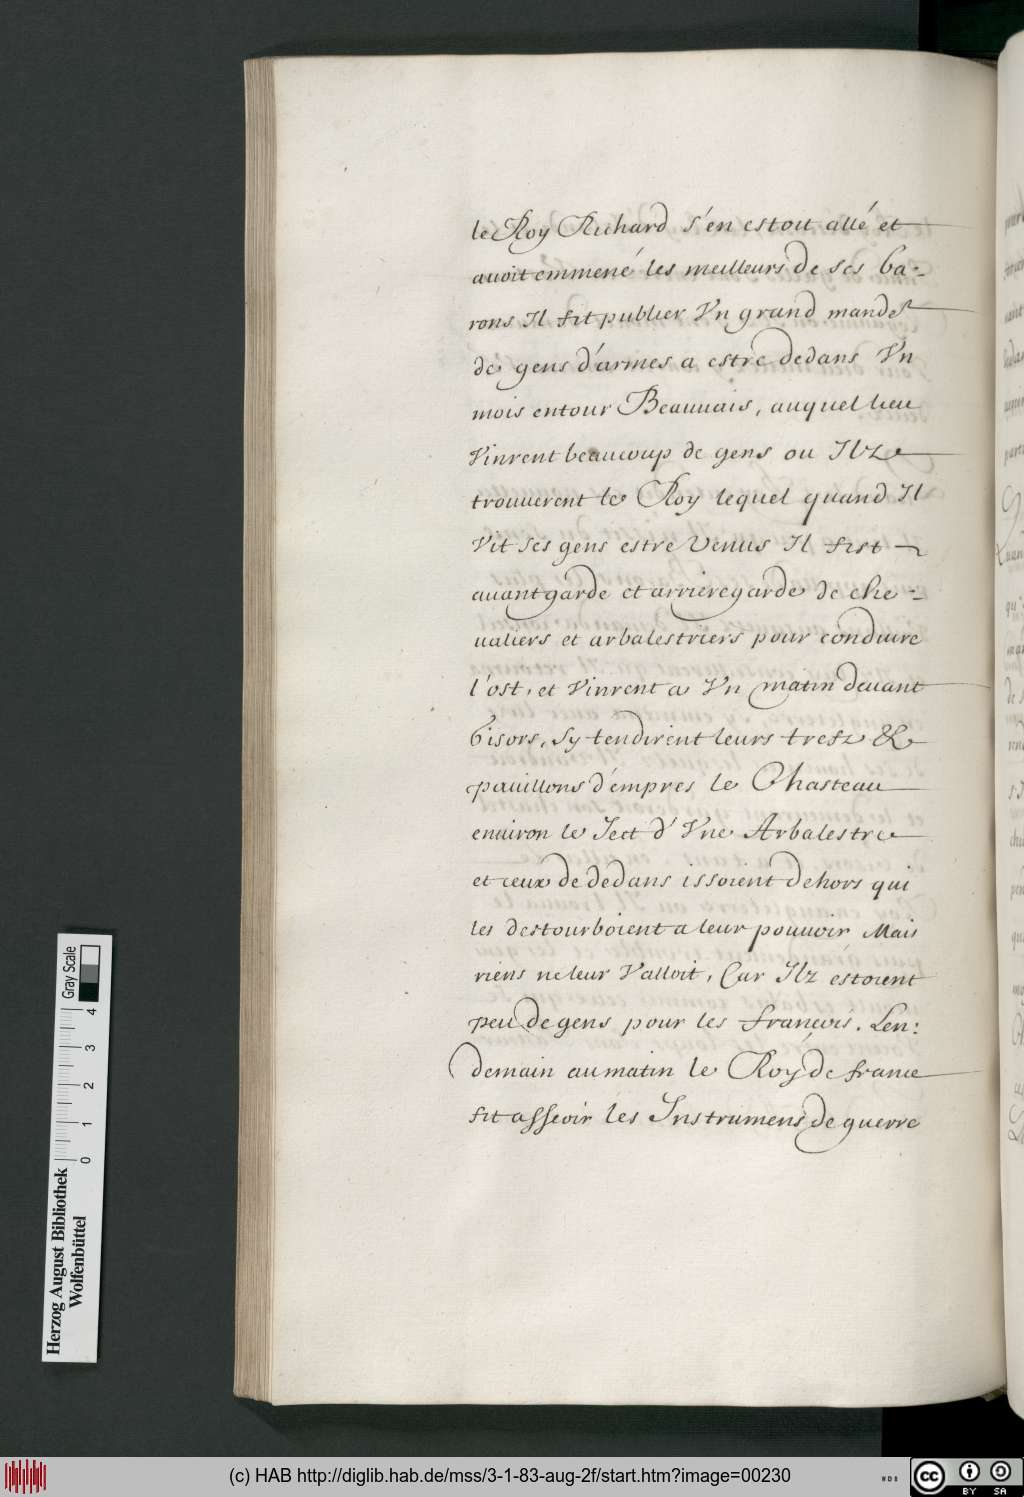 le Roy Richard s'en estoit allé et
auoit emmené les meilleurs de ses ba-
rons Il fit publier Vn grand mandet
de gens d'armes a estre dedans Vn
mois entour Beauuais, auquel lieu
Vinrent beaucoup de gens ou Ilz
trouuerent le Roy lequel quand Il
Vit ses gens estre Venus Il fist
auantgarde et arrieregarde de che-
ualiers et arbalestriers pour conduire
l'ost, et Vinrent a Vn matin deuant
Gisors, Sy tendirent leurs tresz &
pauillons d'empres le Chasteau
enuiron le Ject d'Vne Arbalestre
et ceux de dedans issoient dehors qui
les destourboient a leur pouuoir Mais
riens ne leur Valloit, Car Ilz estoient
peu de gens pour les francois. Len:
demain au matin le Roy de france
fit asseoir les Instrumens de guerre
Herzog August Bibliothek
Wolfenbüttel
0 1 2 3 4
Gray Scale
(c) HAB http://diglib.hab.de/mss/3-1-83-aug-2f/start.htm?image=00230
WDB
cc BY SA